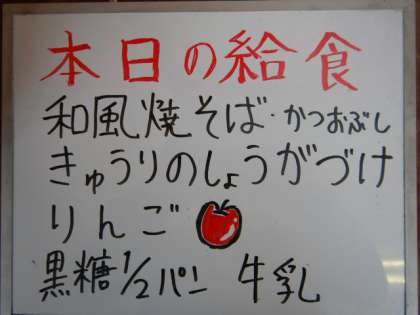 本日の給食
和風焼そば・かつおぶし
きゅうりのしょうがづけ
りんご
黒糖1/2パン 牛乳